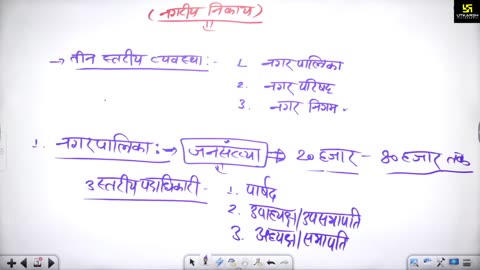 (नगरीय निकाय)
UTKARSH CLASSES
→ तीन स्तरीय व्यवस्था :- 1. नगरपालिका
2. नगर परिषद
3. नगर निगम -
1. नगरपालिका :→ जनसंख्या → 20 हजार - 80 हजार तक
3 स्तरीय पदाधिकारी - 1. पार्षद
2. उपाध्यक्ष/उपसभापति
3. अध्यक्ष/सभापति